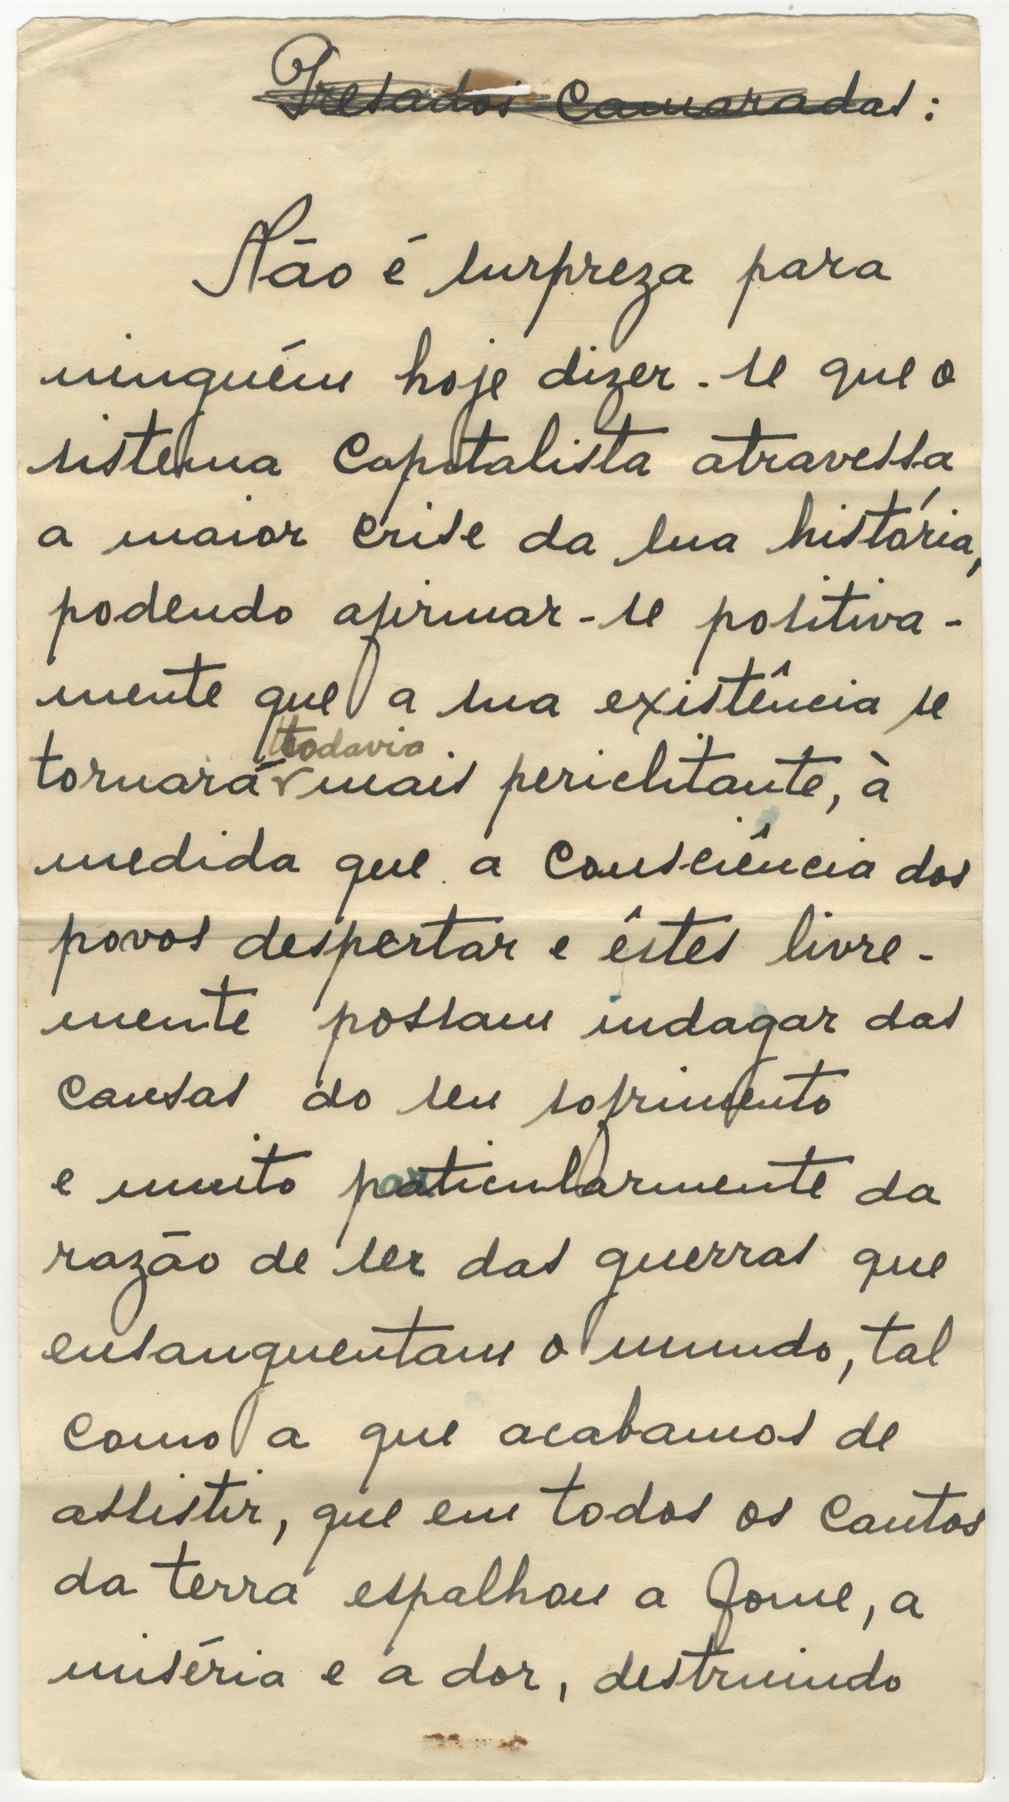 Presados Camaradas:
Não é surpreza para
ninguém hoje dizer-se que o
sistema capitalista atravessa
a maior crise da sua história,
podendo afirmar-se positiva-
mente que a sua existência se
todavia
tornará mais periclitante, à
medida que a consciência dos
povos despertar e êstes livre-
mente possam indagar das
causas do seu sofrimento
e muito particularmente da
razão de ser das guerras que
ensanguentam o mundo, tal
como a que acabamos de
assistir, que em todos os cantos
da terra espalhou a fome, a
miséria e a dor, destruindo